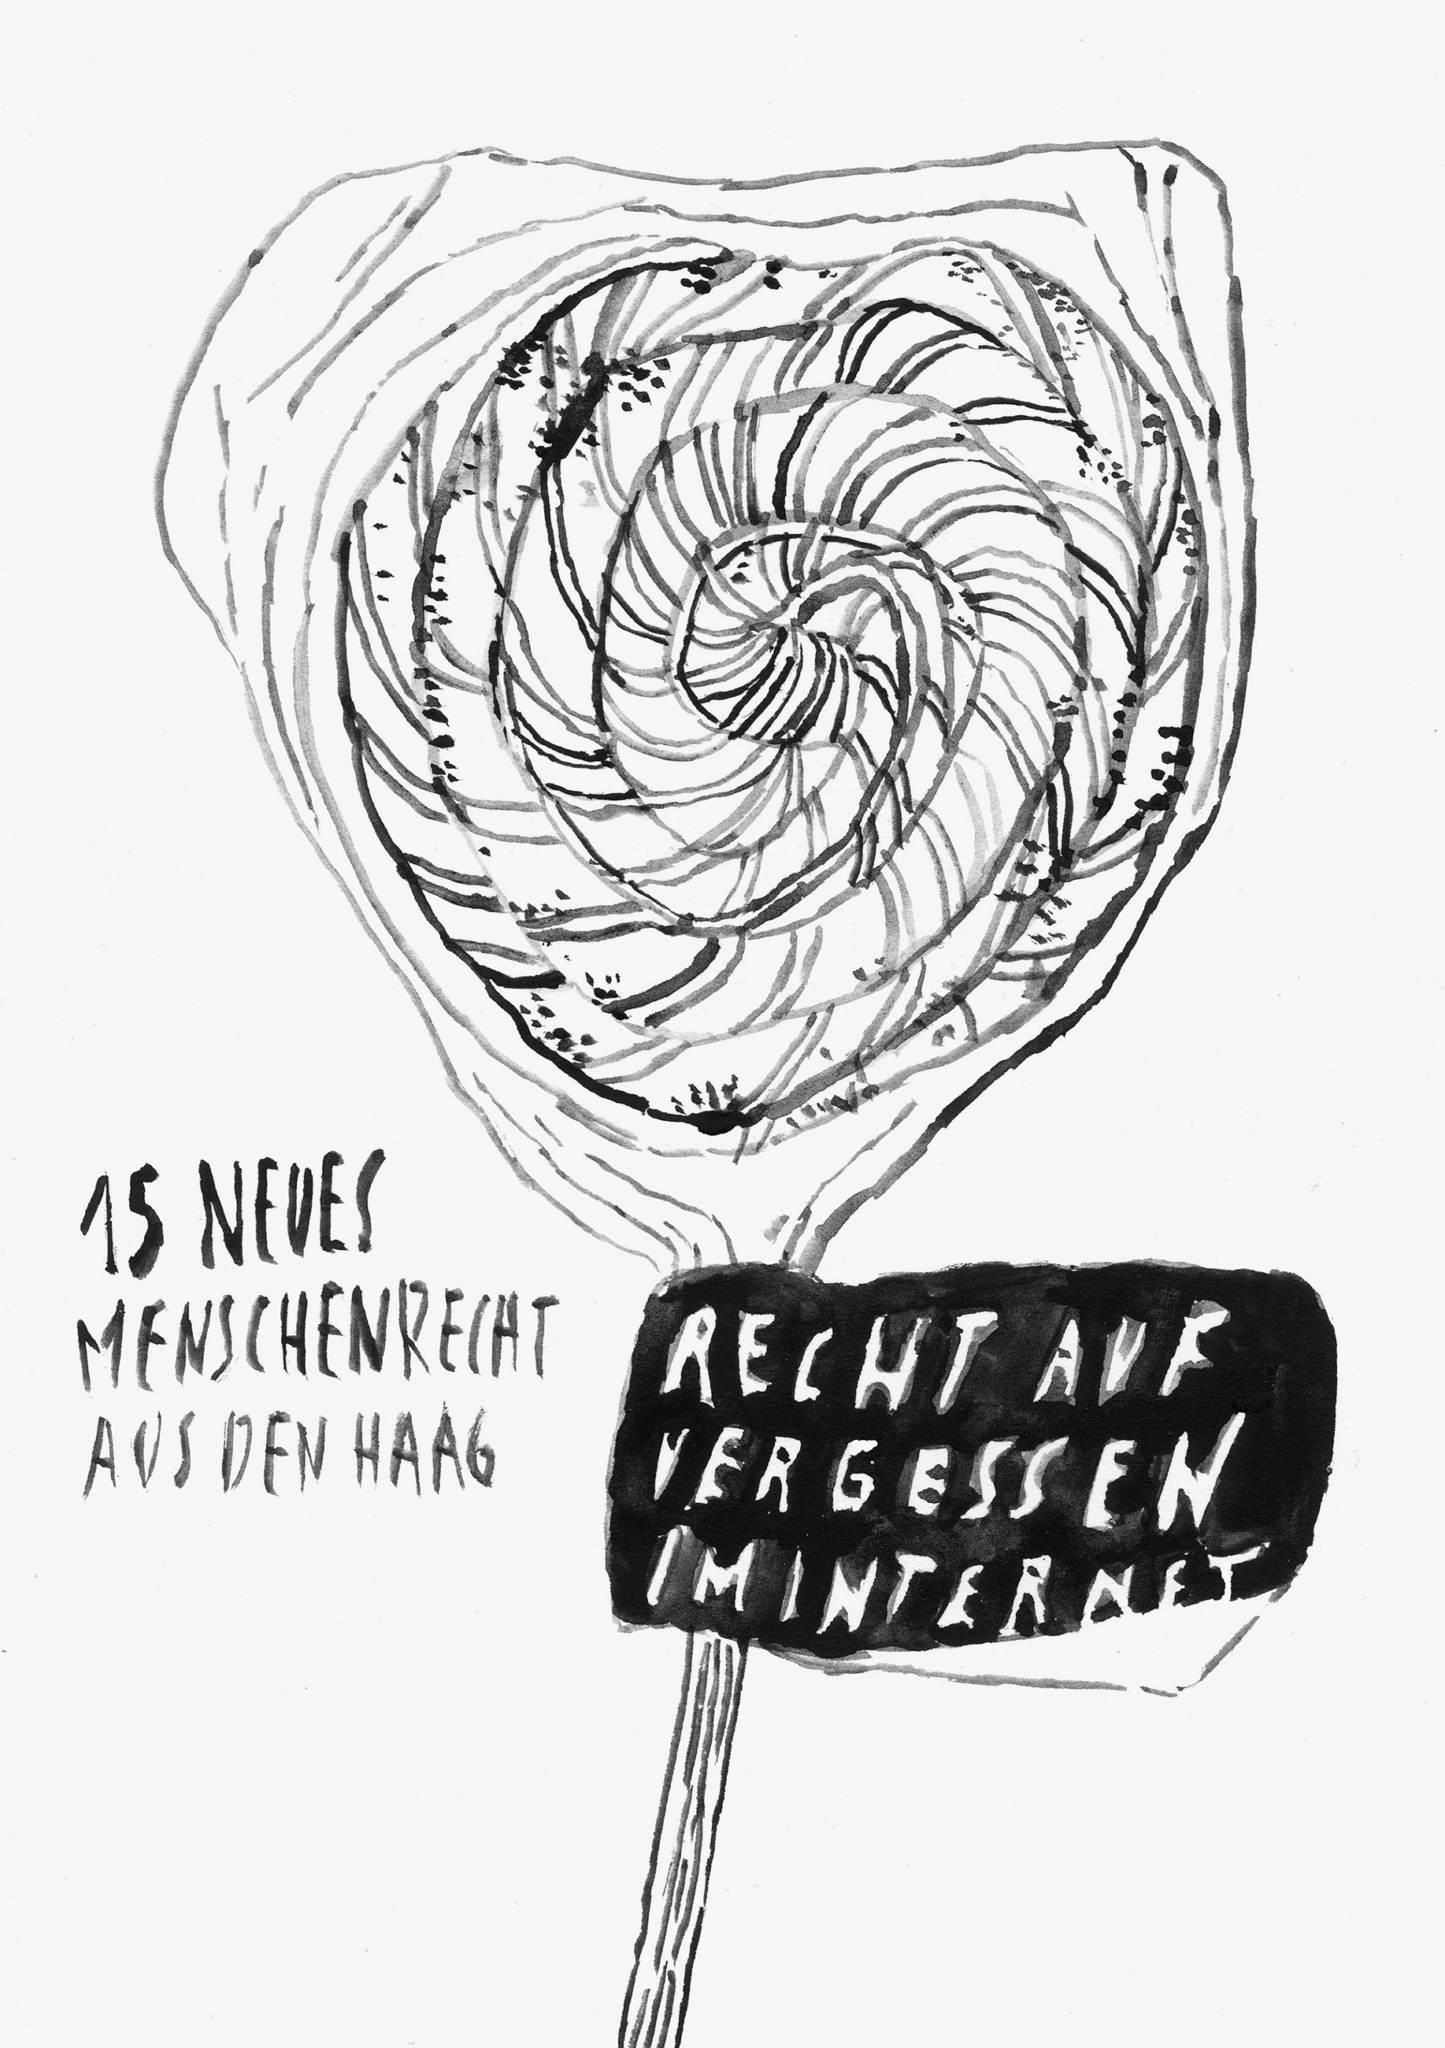 15 NEUES
MENSCHENRECHT
AUS DEN HAAG
RECHT AUF
VERGESSEN
IM INTERNET